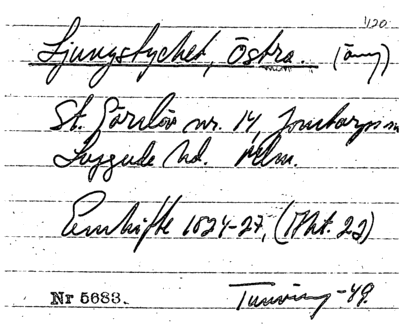 1/20
Ljungstycket, Östra. (äng)
St. Görslöv nr. 14, Jonstorps sn
Luggude hd. Mlm.
Enskifte 1824-27, (Akt. 22)
Nr 5683. Tunving -49.